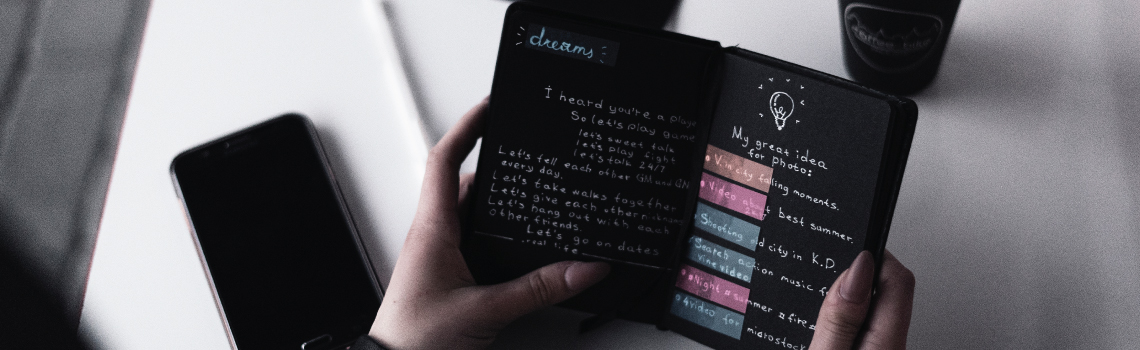 dreams
I heard you're a playe
So let's play game
let's sweet talk
let's play fight
let's talk 24/7
Let's tell each other GM and GN
every day.
Let's take walks together
Let's give each other
Let's hang out with each
other friends.
Let's go on dates
real life
My great idea
for photo:
Vin city falling moments.
Video about best summer.
Shooting old city in K.D.
Search action music f
vine video
#Night #summer #fire#
4video for microstock